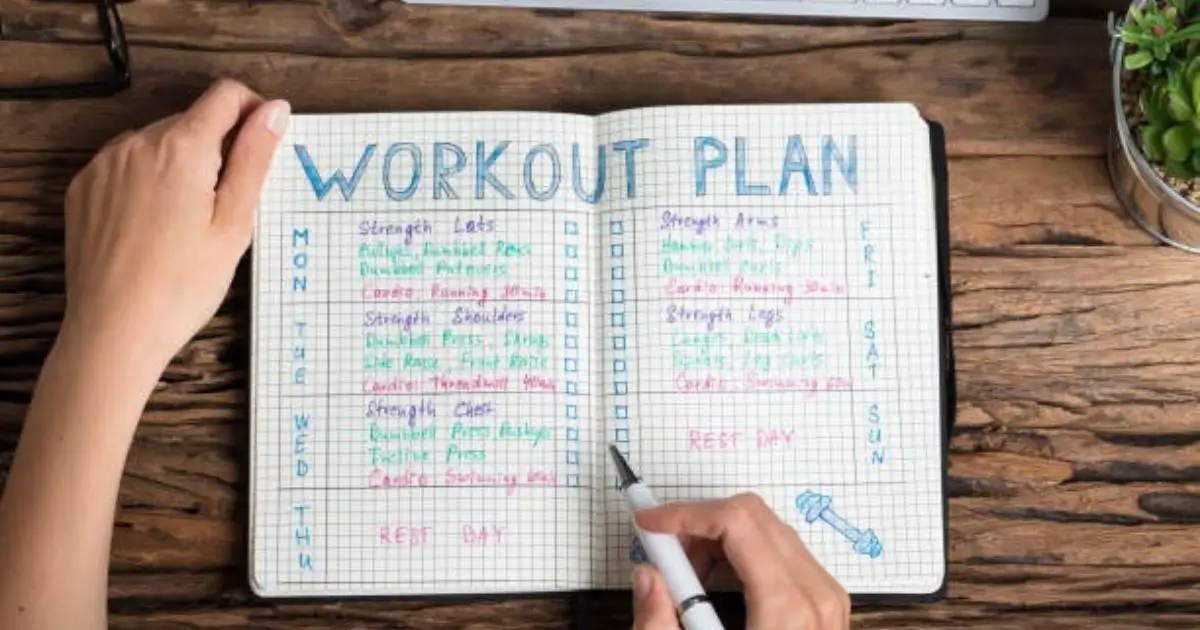 WORKOUT PLAN
MON
Strength Lats
Pullups, Dumbbell Rows
Dumbbell Pullovers
Cardio: Running 30min
TUE
Strength Shoulders
Dumbbell Press, Shrug
Side Raise, Front Raise
Cardio: 40min
WED
Strength Chest
Dumbbell Press Pushups
Incline Press
Cardio: Swimming 60min
THU
REST DAY
FRI
Strength Arms
Hammer Curls, Dips
Dumbbell Curls
Cardio: Running 30min
SAT
Strength Legs
Lunges, Dead Lifts
Squats, Leg Curls
Cardio: Swimming 60min
SUN
REST DAY